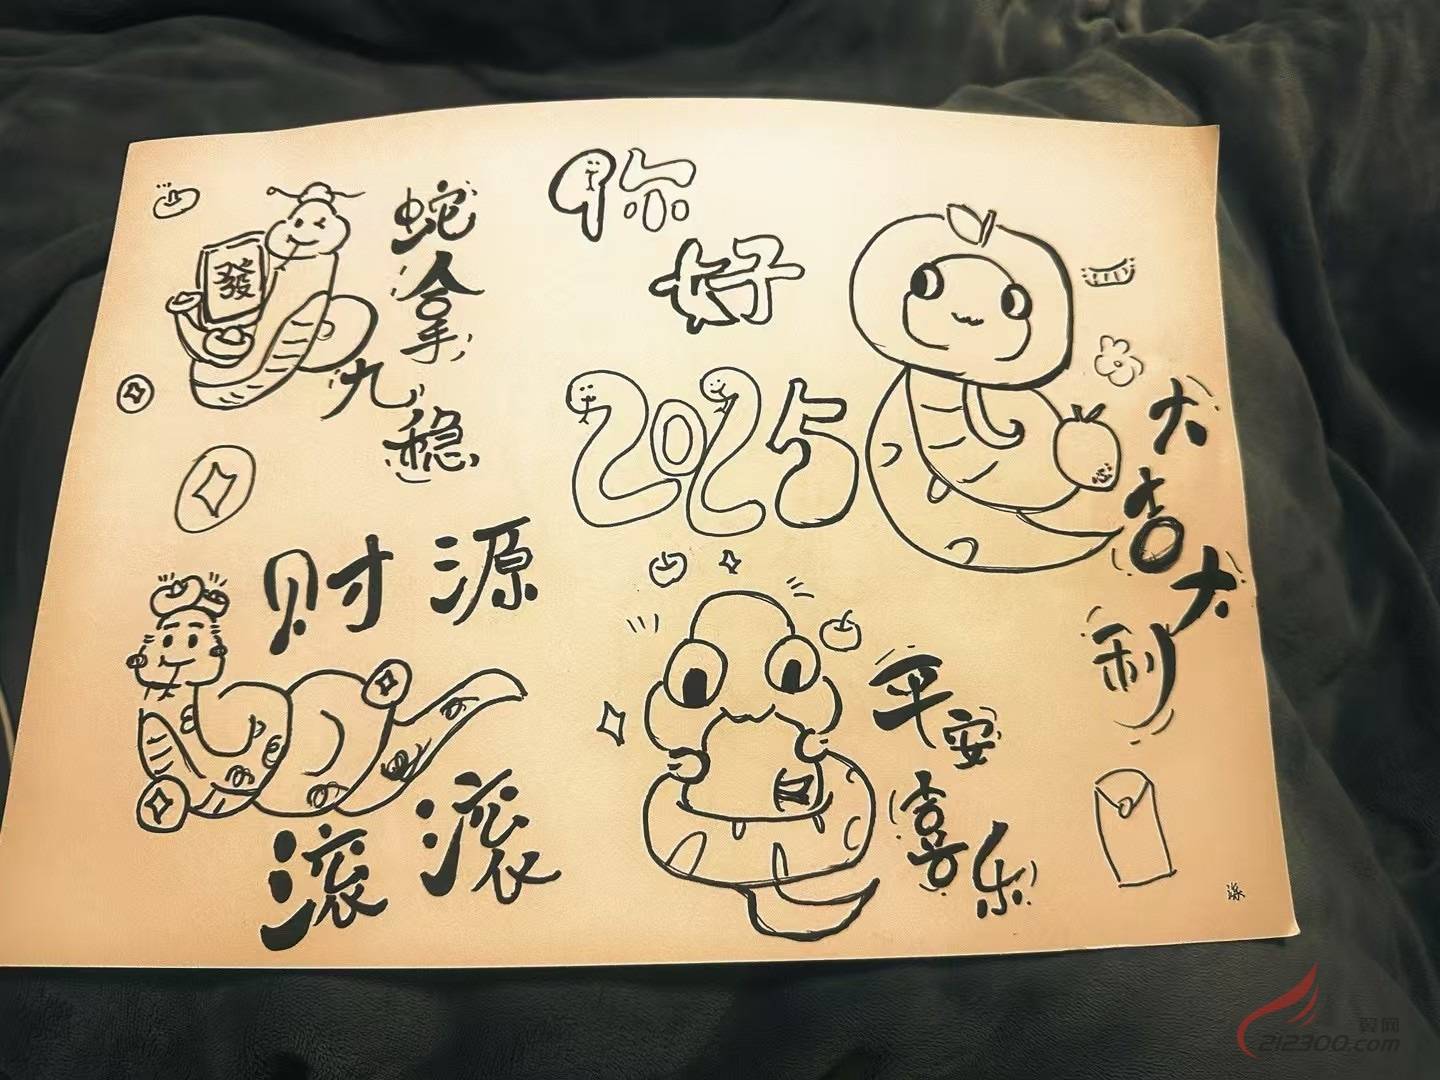 蛇拿九稳
發
你好
2025
大吉大利
财源
滚滚
平安喜乐
翼网
212300.com